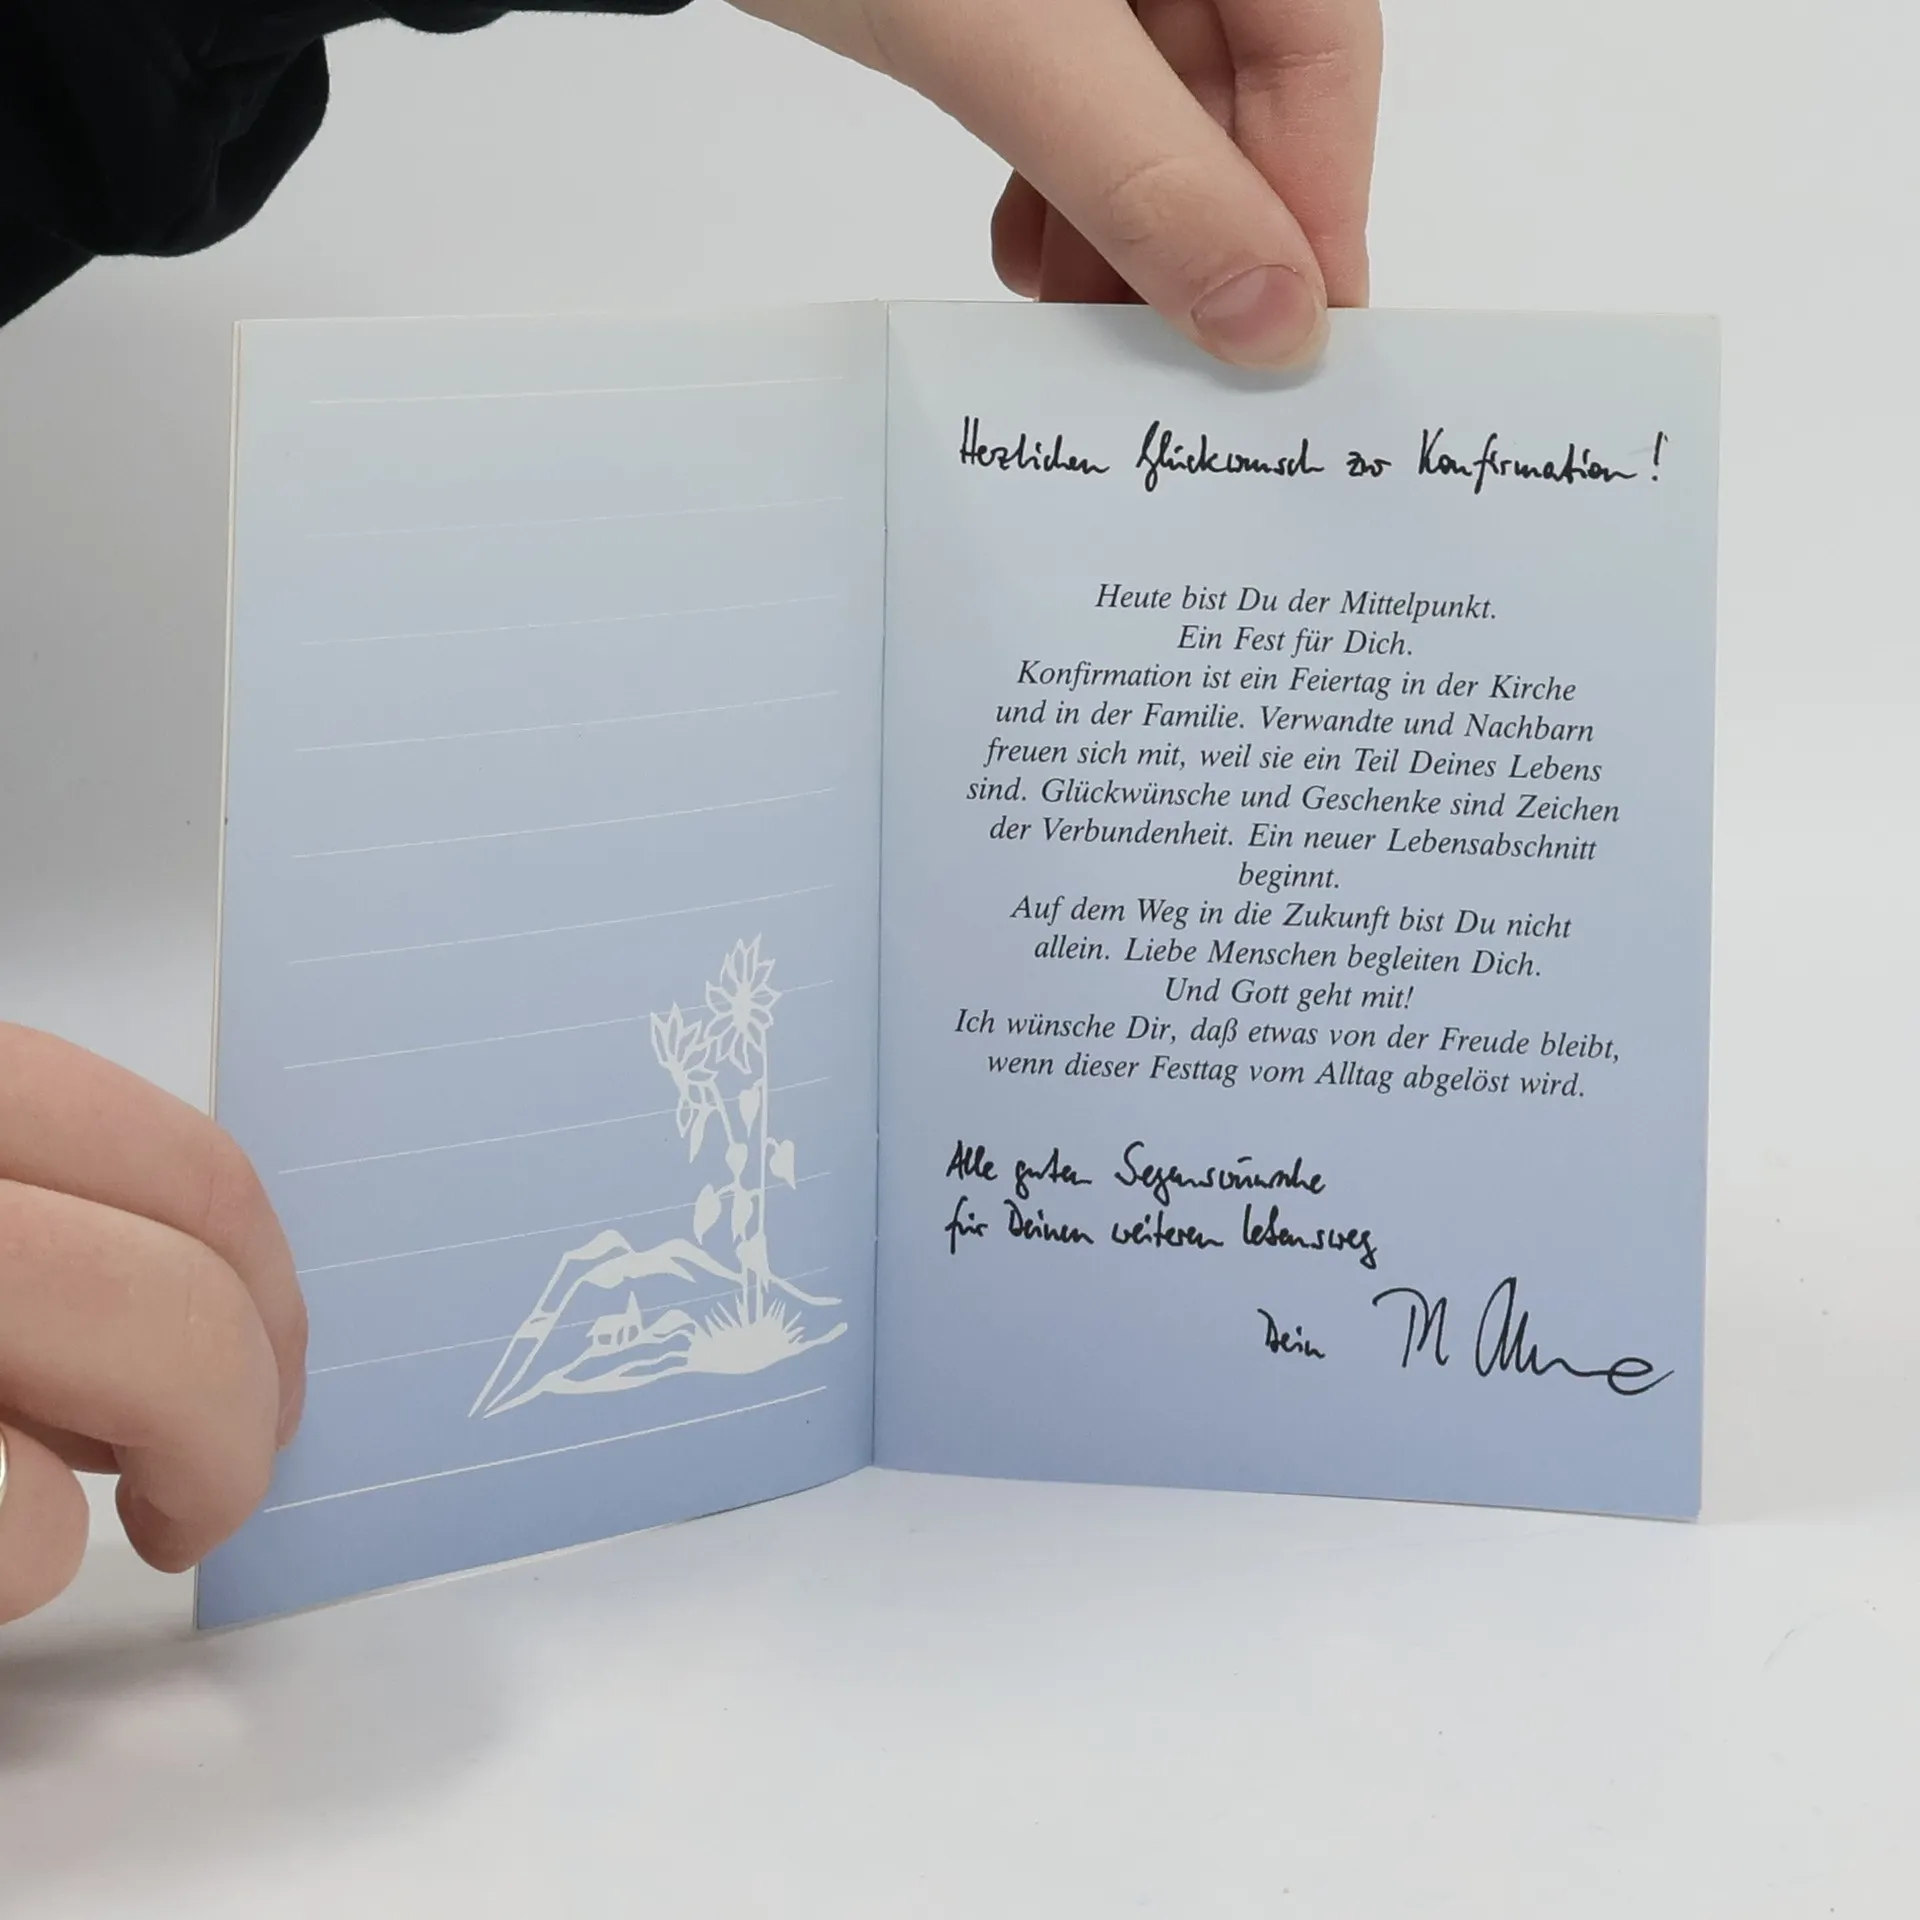 Herzlichen Glückwunsch zur Konfirmation!
Heute bist Du der Mittelpunkt.
Ein Fest für Dich.
Konfirmation ist ein Feiertag in der Kirche
und in der Familie. Verwandte und Nachbarn
freuen sich mit, weil sie ein Teil Deines Lebens
sind. Glückwünsche und Geschenke sind Zeichen
der Verbundenheit. Ein neuer Lebensabschnitt
beginnt.
Auf dem Weg in die Zukunft bist Du nicht
allein. Liebe Menschen begleiten Dich.
Und Gott geht mit!
Ich wünsche Dir, daß etwas von der Freude bleibt,
wenn dieser Festtag vom Alltag abgelöst wird.
Alle guten Segenswünsche
für Deinen weiteren Lebensweg
Dein